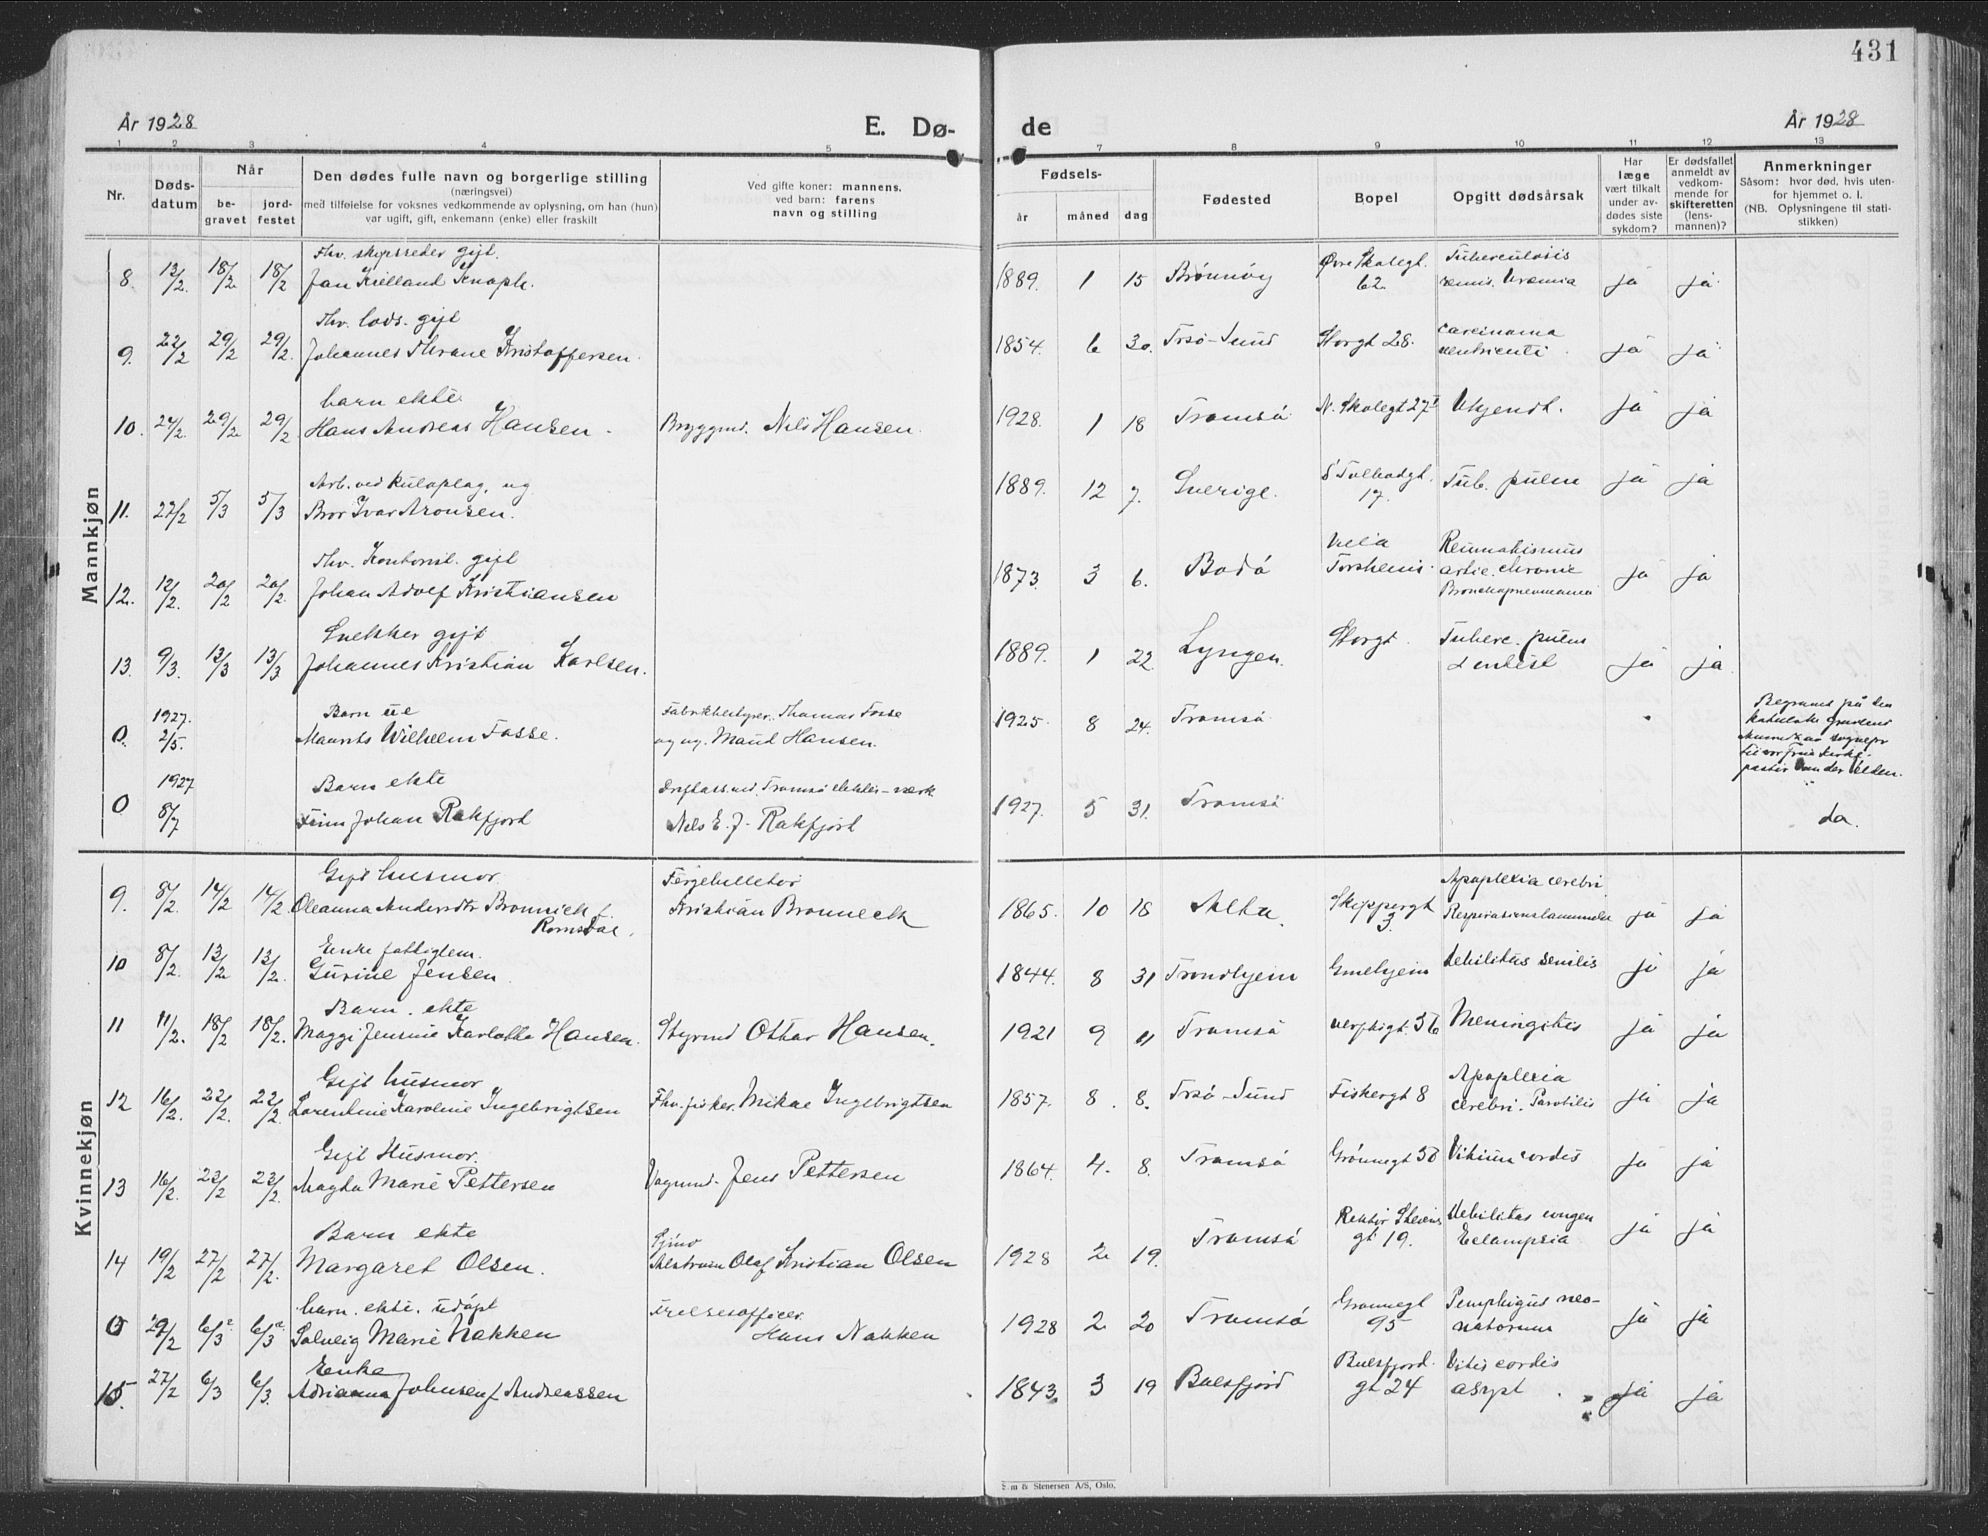 431
År 1928
E. Dø- de
År 1928
1 2 3 4 5 7 8 9 10 11 12 13
Nr.
Døds-datum
Når
be-gravet
jord-festet
Den dødes fulle navn og borgerlige stilling
(næringsvei)
med tilføielse for voksnes vedkommende av oplysning, om han (hun)
var ugift, gift, enkemann (enke) eller fraskilt
Ved gifte koner: mannens.
ved barn: farens
navn og stilling
Fødsels-
år måned dag
Fødested
Bopel
Opgitt dødsårsak
Har læge vært tilkalt under av-dødes siste sykdom?
Er dødsfallet anmeldt av vedkom-mende for skifteretten (lens-mannen)?
Anmerkninger
Såsom: hvor død, hvis uten-
for hjemmet o. l.
(NB. Oplysningene til stati-
stikken)
Mannkjøn
Fhv. skipsreder gift.
8. 13/2. 18/2 18/2 Jan Kielland Knoph. 1889. 1 15 Brønnøy Øvre Skolegt. 62. Tuberculosis renis. Uræmia ja ja
Fhv. lods. gift
9. 22/2 29/2 29/2. Johannes Thrane Kristoffersen. 1854. 6 30. Trsø-Sund Storgt 28. Carcinoma ventriculi. ja ja
barn ekte.
10. 24/2. 29/2 29/2 Hans Andreas Hansen. Bryggmd. Nils Hansen. 1928. 1 18 Tromsø. N. Skolegt 27 Ukjendt. ja ja
Arb. ved kuloplag, ug
11. 27/2 5/3 5/3 Bror Ivar Aronsen. 1889. 12 7. Sverige. S Tolbodgt. 17. Tub. pulm ja ja
Fhv. Kontorist. gift
12. 12/2. 20/2 20/2. Johan Adolf Kristiansen 1873. 3 6. Bodø Reumatismus artic. chronic Bronchopneumonia ja ja
Snekker gift
13. 9/3. 13/3 13/3 Johannes Kristian Karlsen. 1889. 1 22. Lyngen. Storgt. Tuberc. pulm ja ja
Barn ue
0. 1927. 2/5. Maurits Wilhelm Fosse. Fabrikbestyrer. Thomas Fosse
og ug. Maud Hansen. 1925. 8 24. Tromsø
Begravet på den
katolske gravlund
pastor van der Velden.
Barn ekte
0 1927 8/7 Finn Johan Rakfjord Nils E. J. Rakfjord 1927. 5 31. Tromsø do.
Kvinnekjøn
Gift husmor.
9. 8/2. 14/2 14/2. Oleanna Andersdtr Bronnick f. Romsdal. Fergebilletør
Kristian Bronneck 1865. 10 18 Alta. Skippergt 3. Apoplexia cerebri ja ja
Enke fattiglem.
10 8/2. 13/2 13/2. Gurine Jensen. 1844. 8 31 Trondhjem Gmlhjem Debilitas senilis ja ja
Barn. ekte
11 11/2. 18/2 18/2. Maggi Jensine Karlotta Hansen. Styrmd Ottar Hansen. 1921 9 11 Tromsø verftsgt. 56 Meningitis ja ja
Gift husmor
12 16/2. 22/2. 22/2. Lorentine Karoline Ingebrigtsen Fhv. fisker. Mikae Ingebrigtsen 1857. 8. 8. Trsø-Sund Fiskergt 8 Apoplexia cerebri. Parotitis ja ja
Gift Husmor.
13 16/2. 23/2 23/2. Magta Marie Pettersen Vognmd. Jens Pettersen 1864. 4. 8. Tromsø Grønnegt 50 Vitium cordis ja ja
Barn ekte
14 19/2 27/2 27/2. Margaret Olsen. Olaf Kristian Olsen 1928 2 19. Tromsø Rektor Steens gt 19. Debilitas congen Eclampsia ja ja
barn. ekte. udøpt
0 29/2 6/3 6/3 Solveig Marie Nakken Frelsesofficer.
Hans Nakken 1928 2 20 Tromsø Grønnegt 95 Pemphigus neo-natorum ja ja
Enke
15. 27/2 6/3 6/3. Adrianna Johnsen f. Andreassen 1843. 3 19 Balsfjord Balsfjord. gt 24 Vitis cordis ja ja
& Stenersen A/S, Oslo.